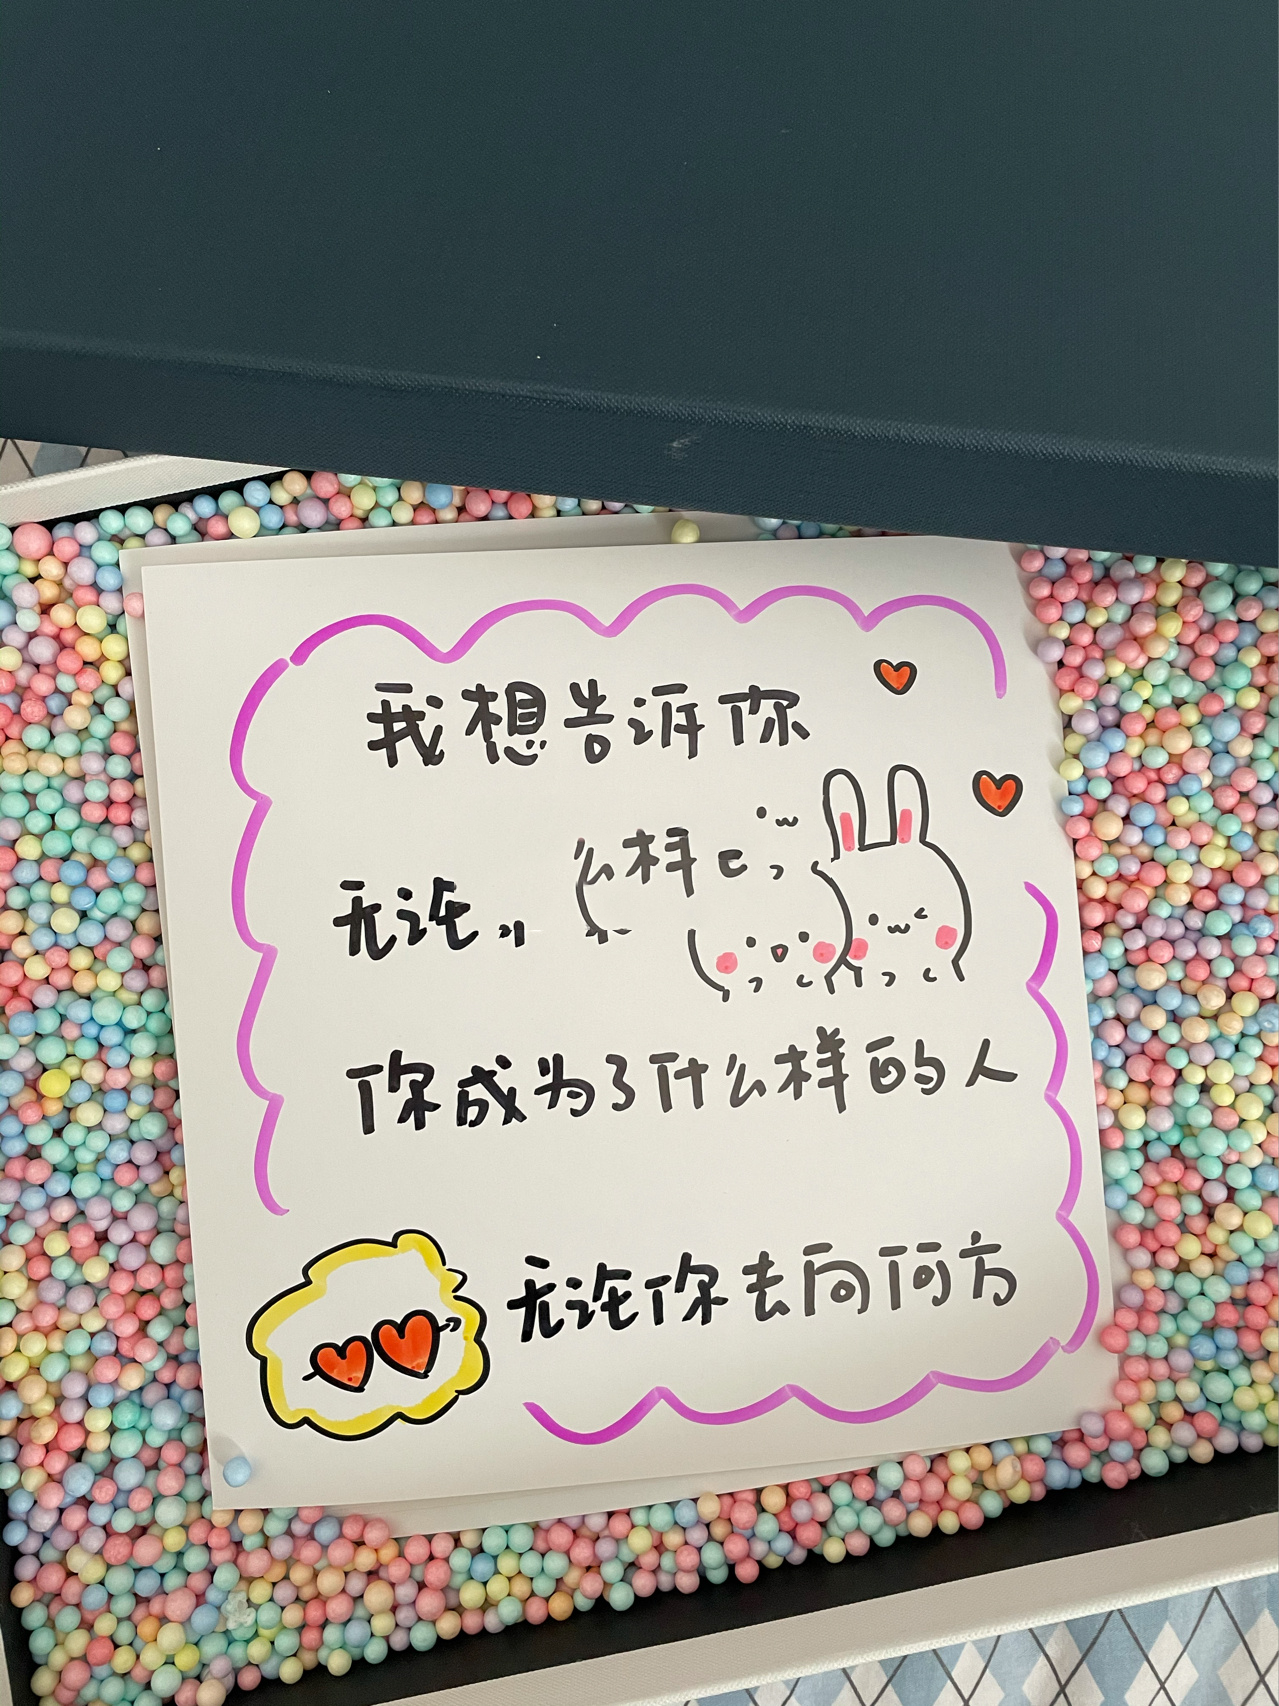 我想告诉你
无论 么样
你成为了什么样的人
无论你去向何方